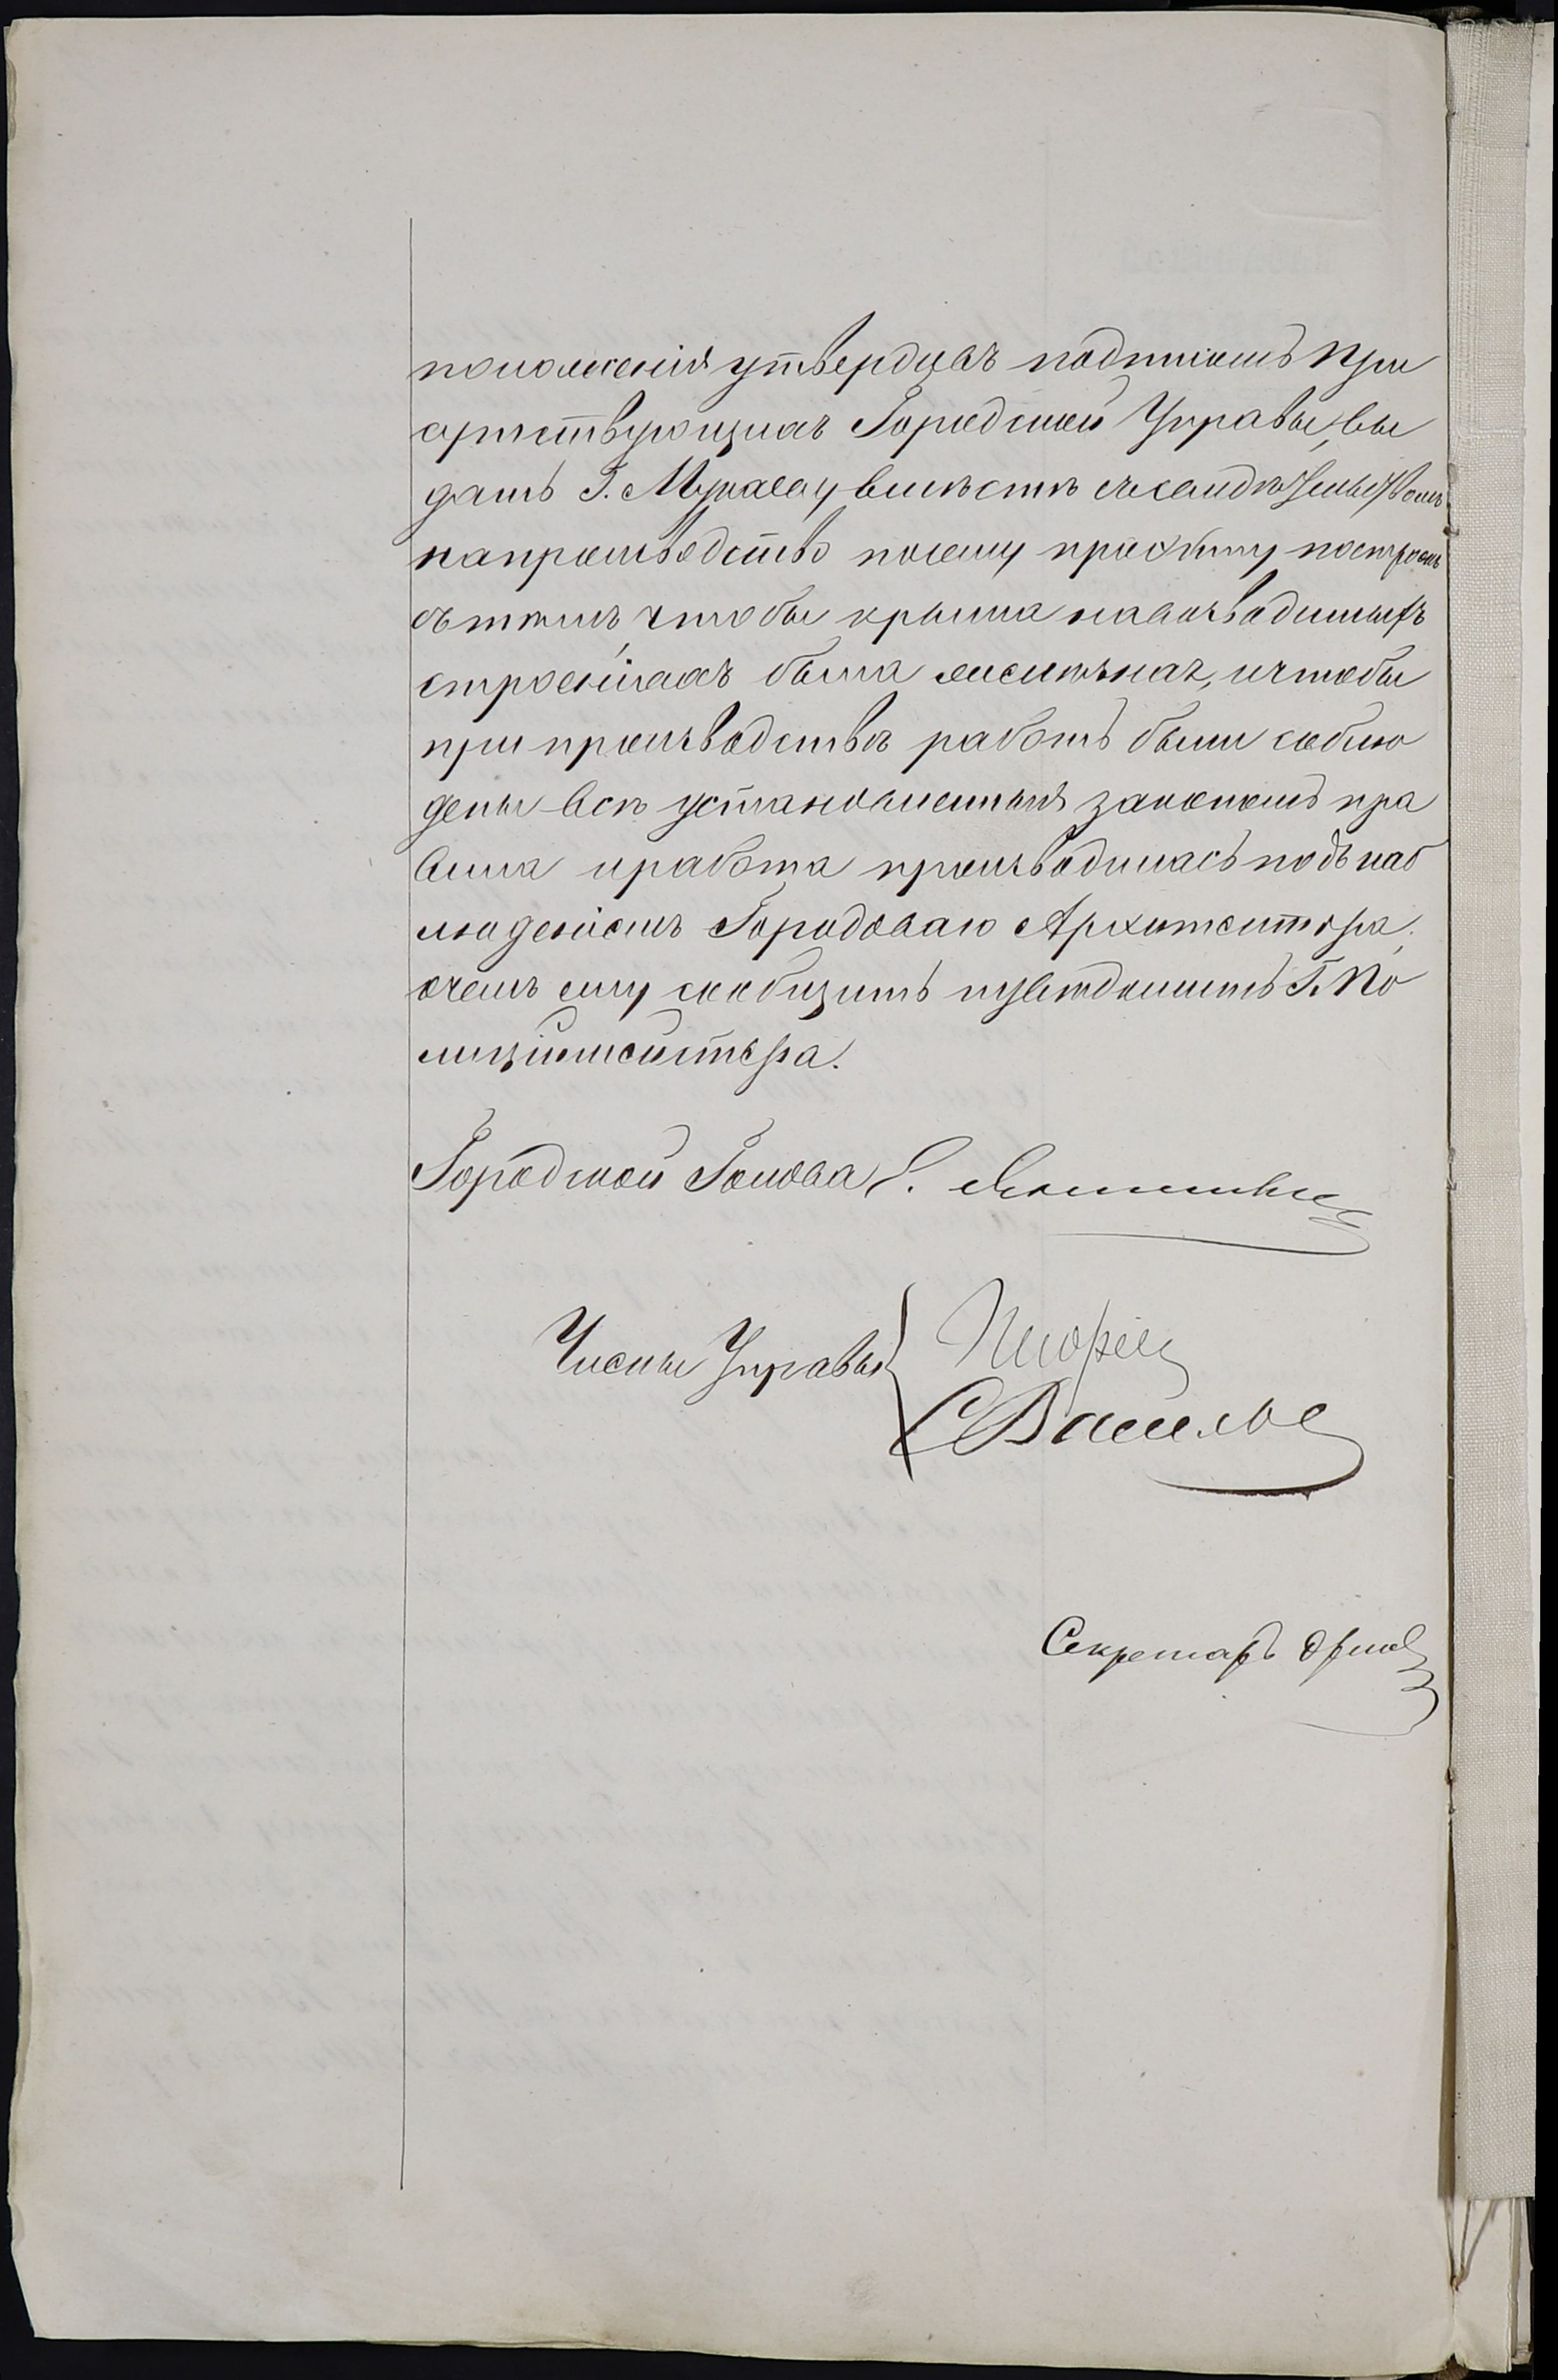 положенія утвердивъ подписомъ При
сутствующихъ Городской Управы, вы
дать Г. вмѣстѣ съ
на производство по сему проэкту построекъ
съ тѣмъ чтобы крыша на возводимыхъ
строеніяхъ была желѣзная, и чтобы
при производствѣ работъ были соблю
дены всѣ установленныя закономъ пра
вила и работа производилась подъ наб
люденіемъ Городоваго Архитектора;
о чемъ ему сообщить и увѣдомить Г. По
лиціймейстера.
Городской Голова
Члены Управы
С Василье
Секретарь